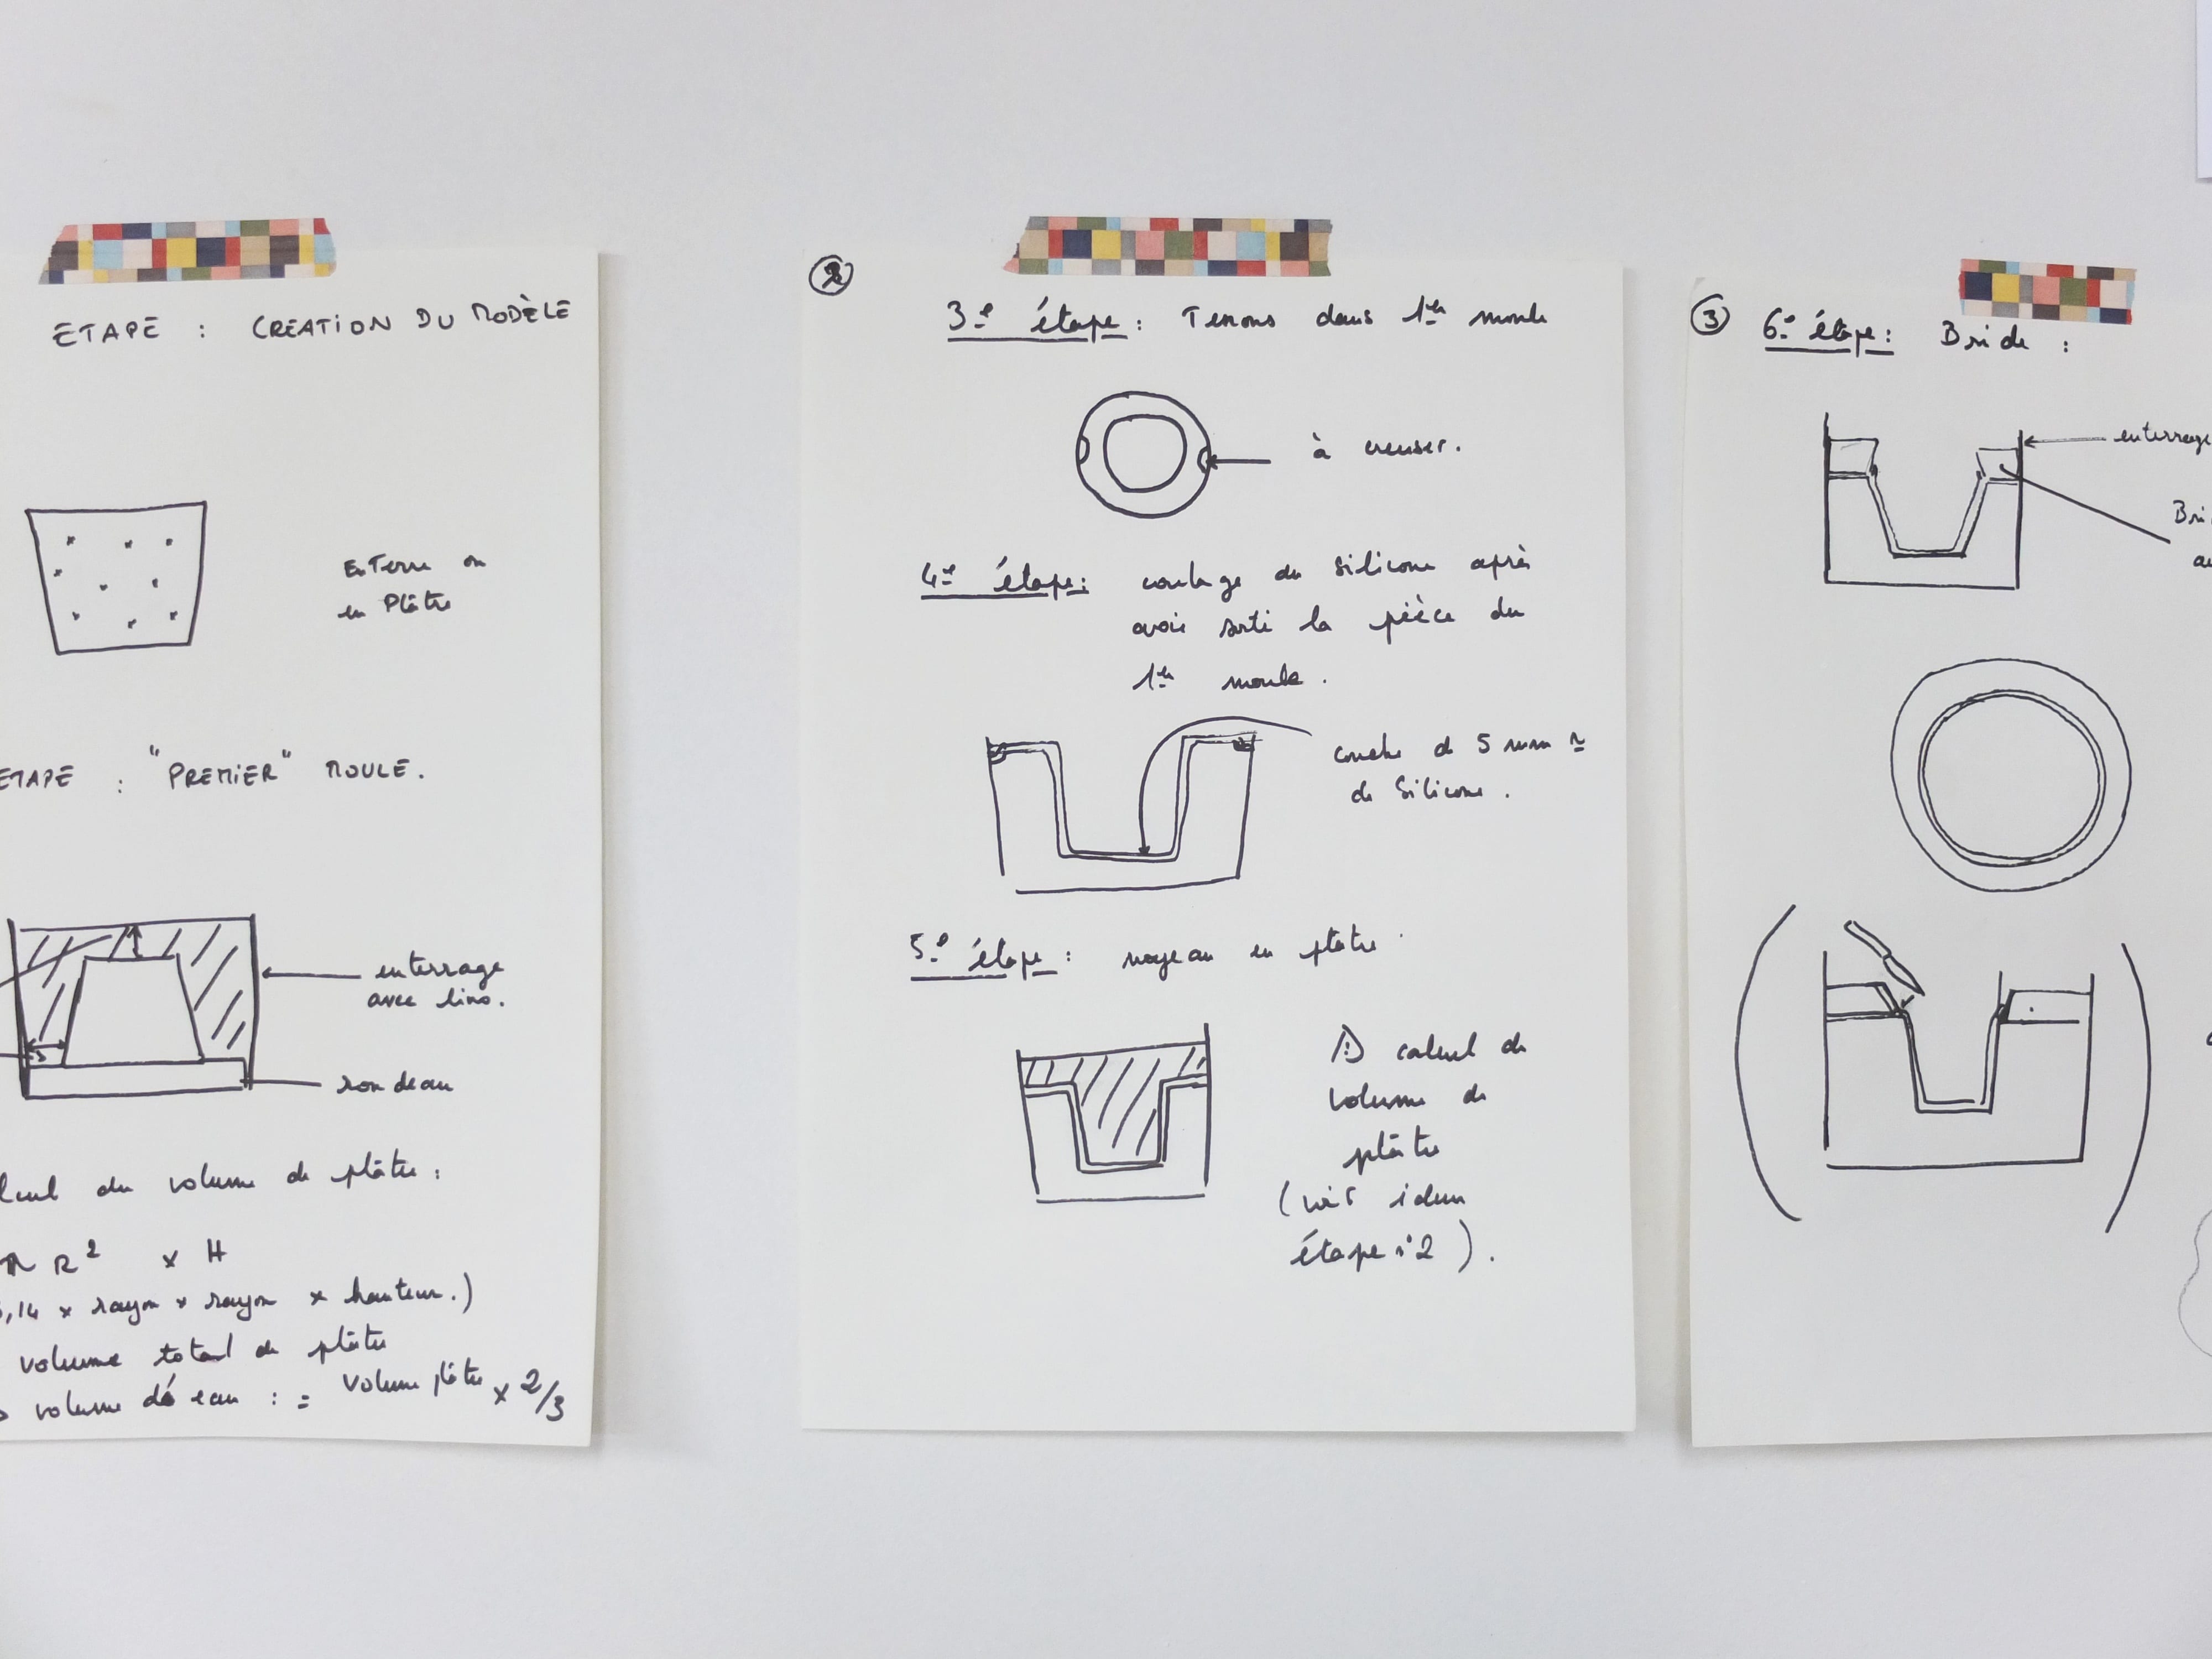 ETAPE : CREATION DU MODÈLE
En Terre ou
en Plâtre
ETAPE : "PREMIER" MOULE.
enterrage
avec lino.
rondeau
lcul du volume de plâtre :
π R² x H
3,14 x rayon x rayon x hauteur.)
volume total de plâtre
volume d'eau : = Volume plâtre x 2/3
2
3e étape : Tenons dans 1er moule
à creuser.
4e étape : coulage du silicone après
avoir sorti la pièce du
1er moule.
couche de 5 mm ≈
de Silicone.
5e étape : noyeau en plâtre
calcul de
volume de
plâtre
(voir idem
étape n°2).
3 6e étape : Bride :
enterrage
Bri
au